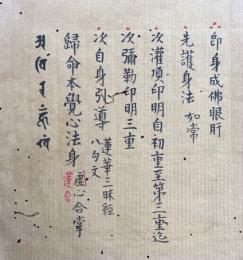 即身成佛眼肝
先護身法 如常
次灌頂印明自初重至第三重迄
次彌勒印明三重
次自身引導 蓮華三昧經
八句文
歸命本覺心法身 虚心合掌
蓮合